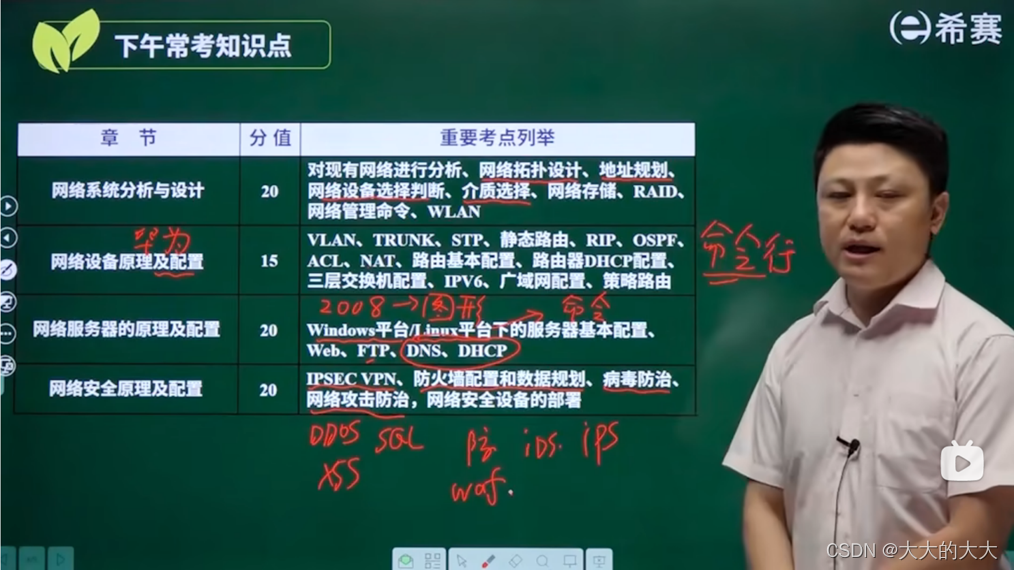 下午常考知识点
希赛
章 节 分 值 重要考点列举
网络系统分析与设计 20 对现有网络进行分析、网络拓扑设计、地址规划、
网络设备选择判断、介质选择、网络存储、RAID、
网络管理命令、WLAN
华为
网络设备原理及配置 15 VLAN、TRUNK、STP、静态路由、RIP、OSPF、
ACL、NAT、路由基本配置、路由器DHCP配置、
三层交换机配置、IPV6、广域网配置、策略路由
命令行
2008→图形 命令
网络服务器的原理及配置 20 Windows平台/Linux平台下的服务器基本配置、
Web、FTP、DNS、DHCP
网络安全原理及配置 20 IPSEC VPN、防火墙配置和数据规划、病毒防治、
网络攻击防治，网络安全设备的部署
DDOS SQL iDS. iPS
XSS waf.
CSDN @大大的大大